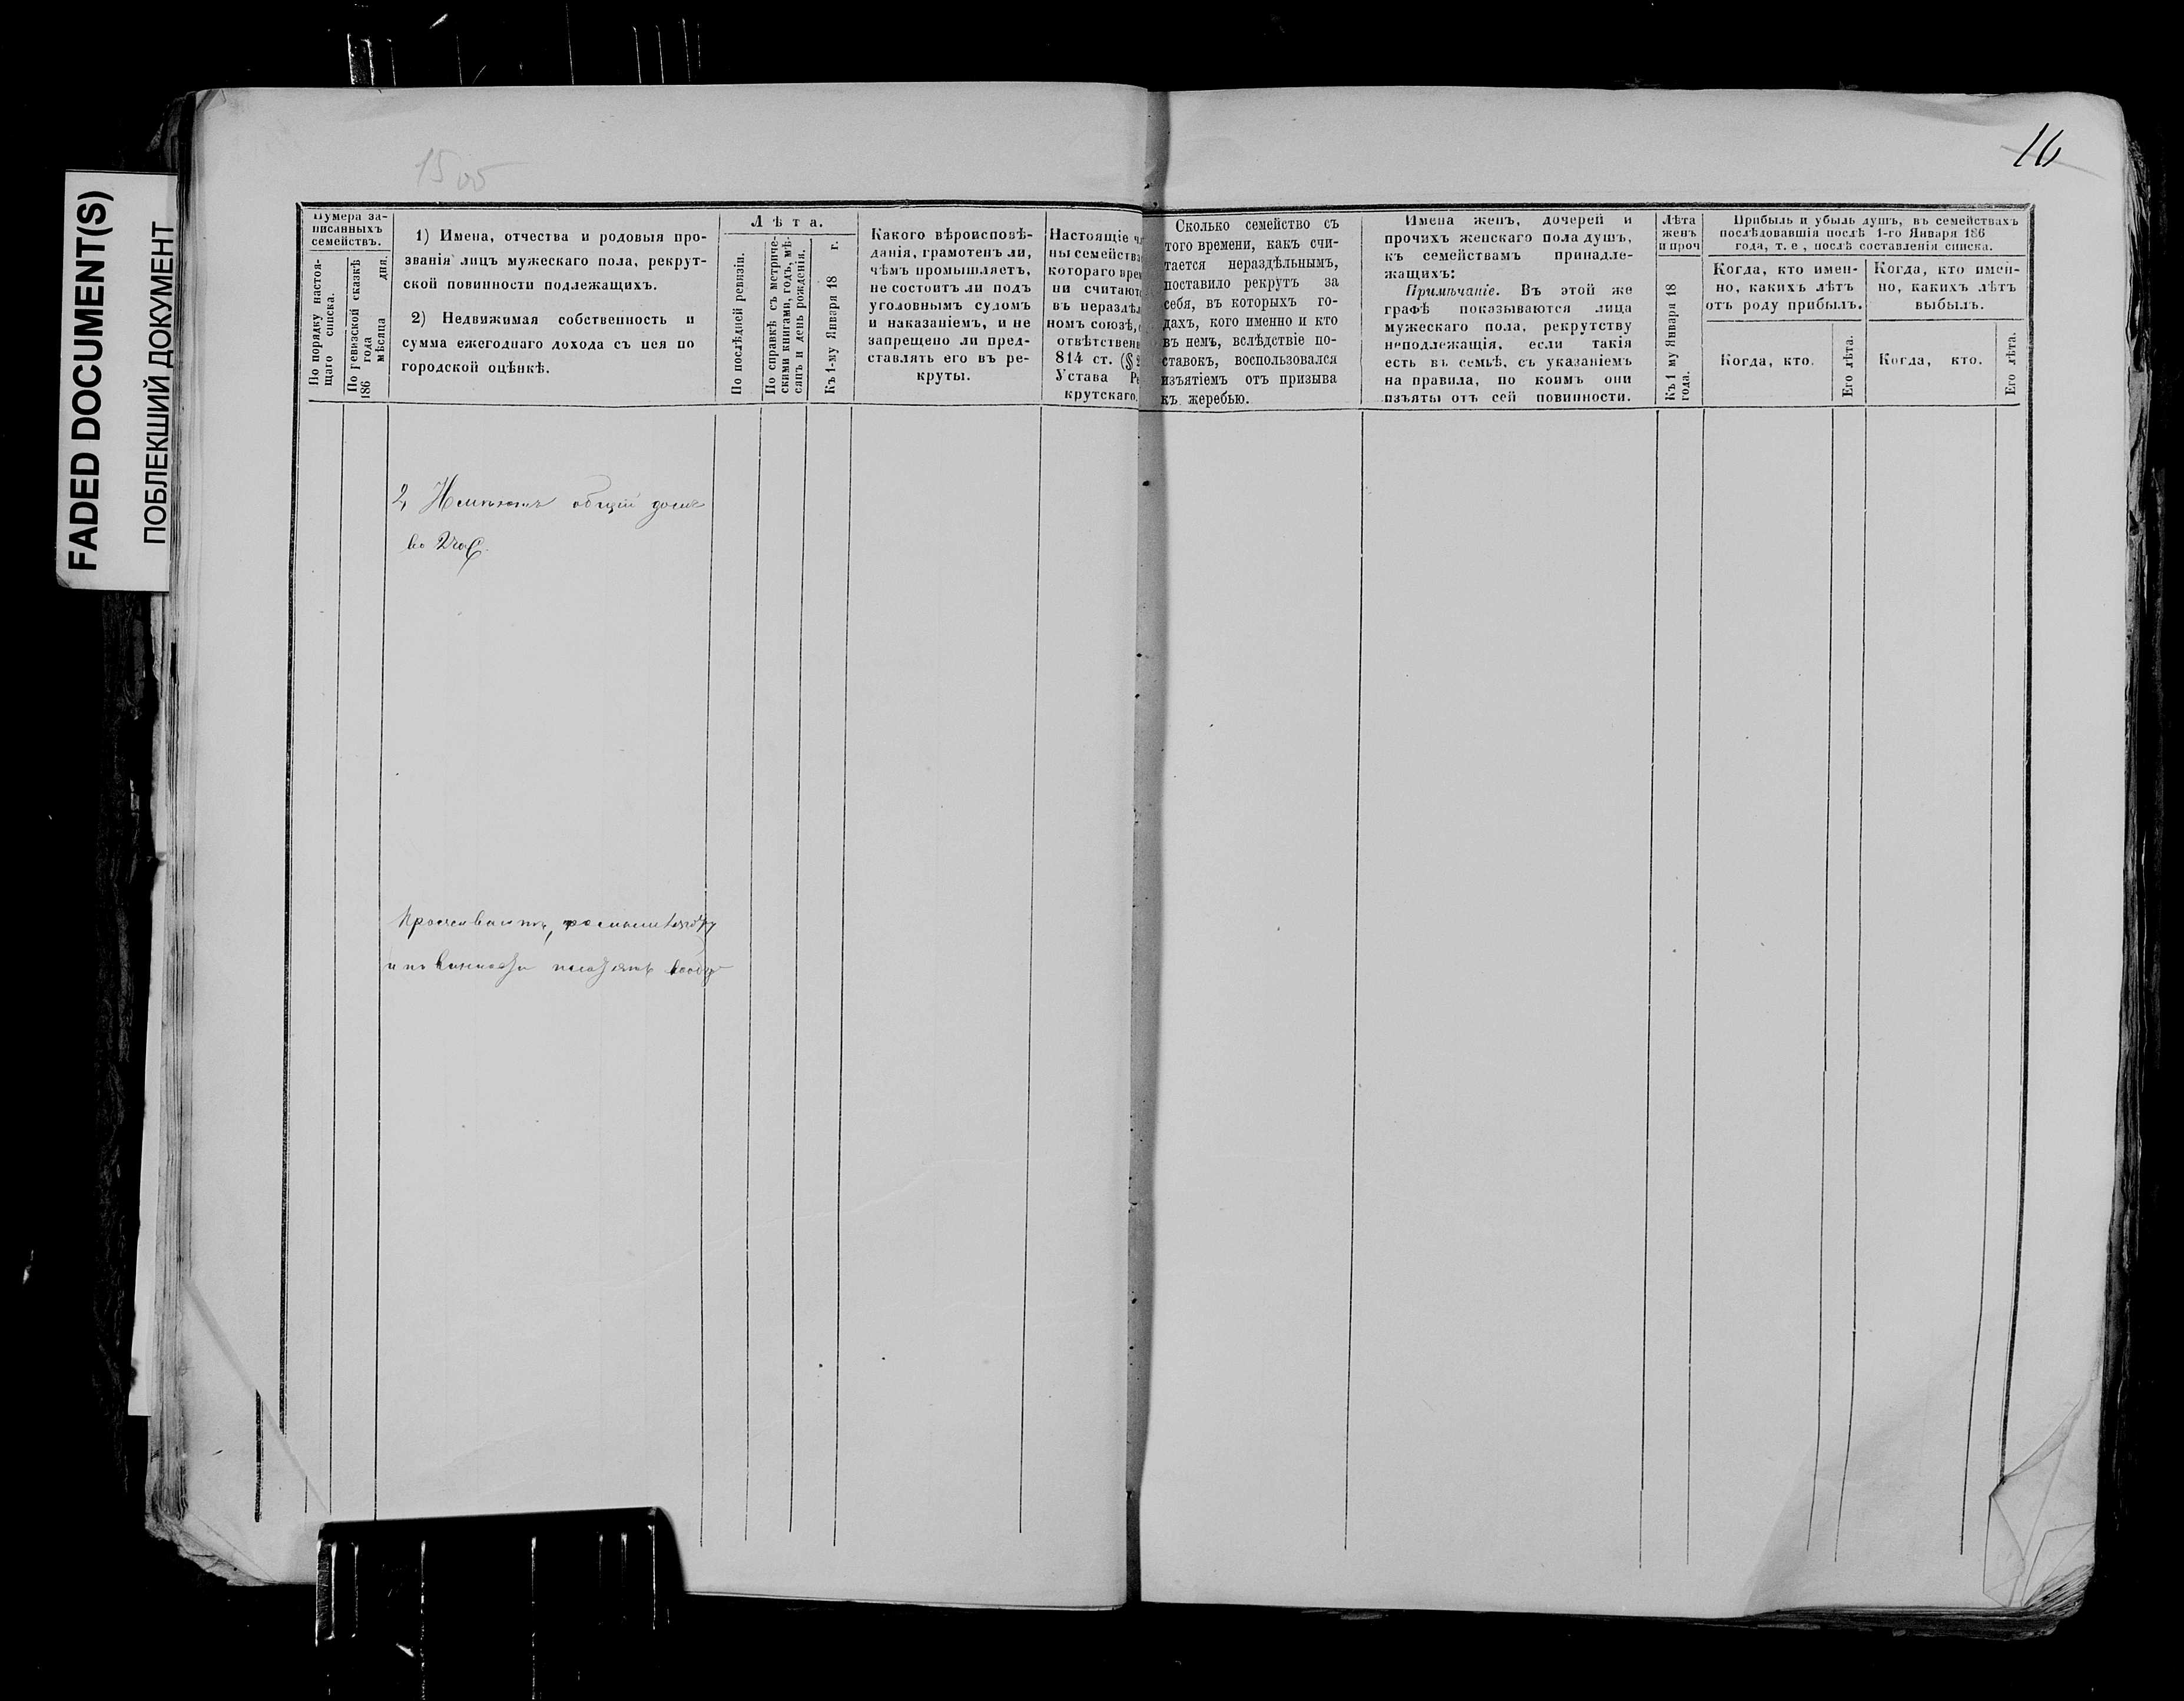 FADED DOCUMENT(S)
ПОБЛЕКШИЙ ДОКУМЕНТ
15 об
16
Нумера за-
писанныхъ
семействъ.
По порядку настоя-
щаго списка.
По ревизской сказкѣ
186 года
мѣсяца дня.
1) Имена, отчества и родовыя про-
званія лицъ мужескаго пола, рекрут-
ской повинности подлежащихъ.
2) Недвижимая собственность и
сумма ежегоднаго дохода съ нея по
городской оцѣнкѣ.
Лѣта.
По послѣдней ревизіи.
По справкѣ съ метриче-
скими книгами, годъ, мѣ-
сяцъ и день рожденія.
Къ 1-му Января 18 г.
Какого вѣроисповѣ-
данія, грамотенъ ли,
чѣмъ промышляетъ,
не состоитъ ли подъ
уголовнымъ судомъ
и наказаніемъ, и не
запрещено ли пред-
ставлять его въ ре-
круты.
Настоящіе
ны семейства
котораго
ни считают
въ нераздѣл
номъ союзѣ,
отвѣтствен
814 ст. (§
Устава Ре
крутскаго.
Сколько семейство съ
того времени, какъ счи-
тается нераздѣльнымъ,
поставило рекрутъ за
себя, въ которыхъ го-
дахъ, кого именно и кто
въ немъ, вслѣдствіе по-
ставокъ, воспользовался
изъятіемъ отъ призыва
къ жеребью.
Имена женъ, дочерей и
прочихъ женскаго пола душъ,
къ семействамъ принадле-
жащихъ:
Примѣчаніе. Въ этой же
графѣ показываются лица
мужескаго пола, рекрутству
неподлежащія, если такія
есть въ семьѣ, съ указаніемъ
на правила, по коимъ они
изъяты отъ сей повинности.
Лѣта
женъ
и проч
Къ 1 му Января 18
года.
Прибыль и убыль душъ, въ семействахъ
послѣдовавшія послѣ 1-го Января 186
года, т. е, послѣ составленія списка.
Когда, кто имен-
но, какихъ лѣтъ
отъ роду прибылъ.
Когда, кто.
Его лѣта.
Когда, кто имен-
но, какихъ лѣтъ
выбылъ.
Когда, кто.
Его лѣта.
2, Имѣютъ общій домъ
во 2 час.
Проживаютъ,
и повинности платятъ